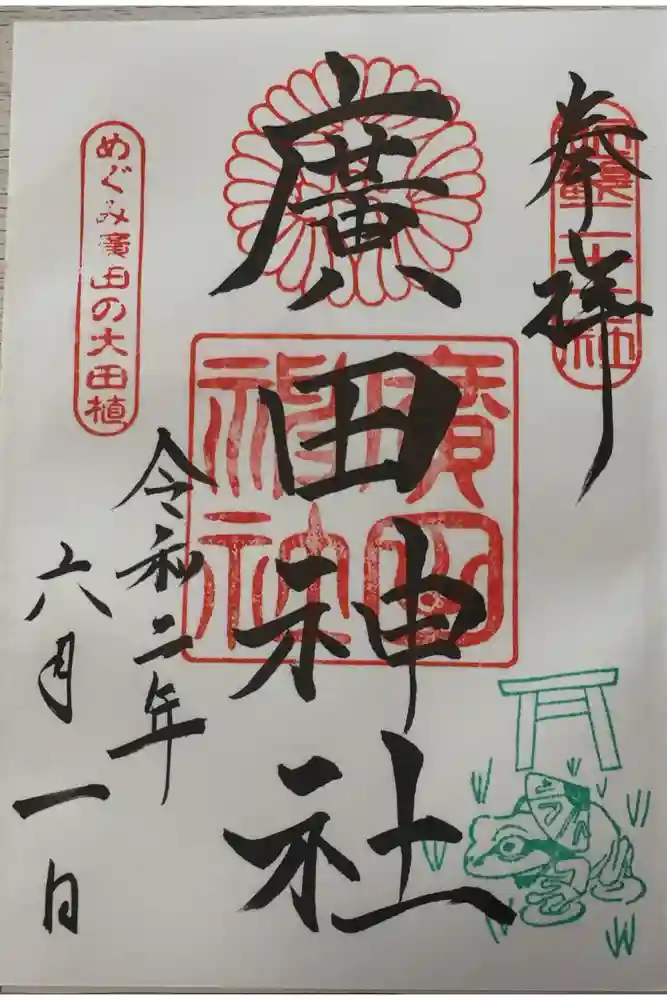 奉拝
廣田神社
廣田神社
令和二年
六月一日
めぐみ廣田の大田植